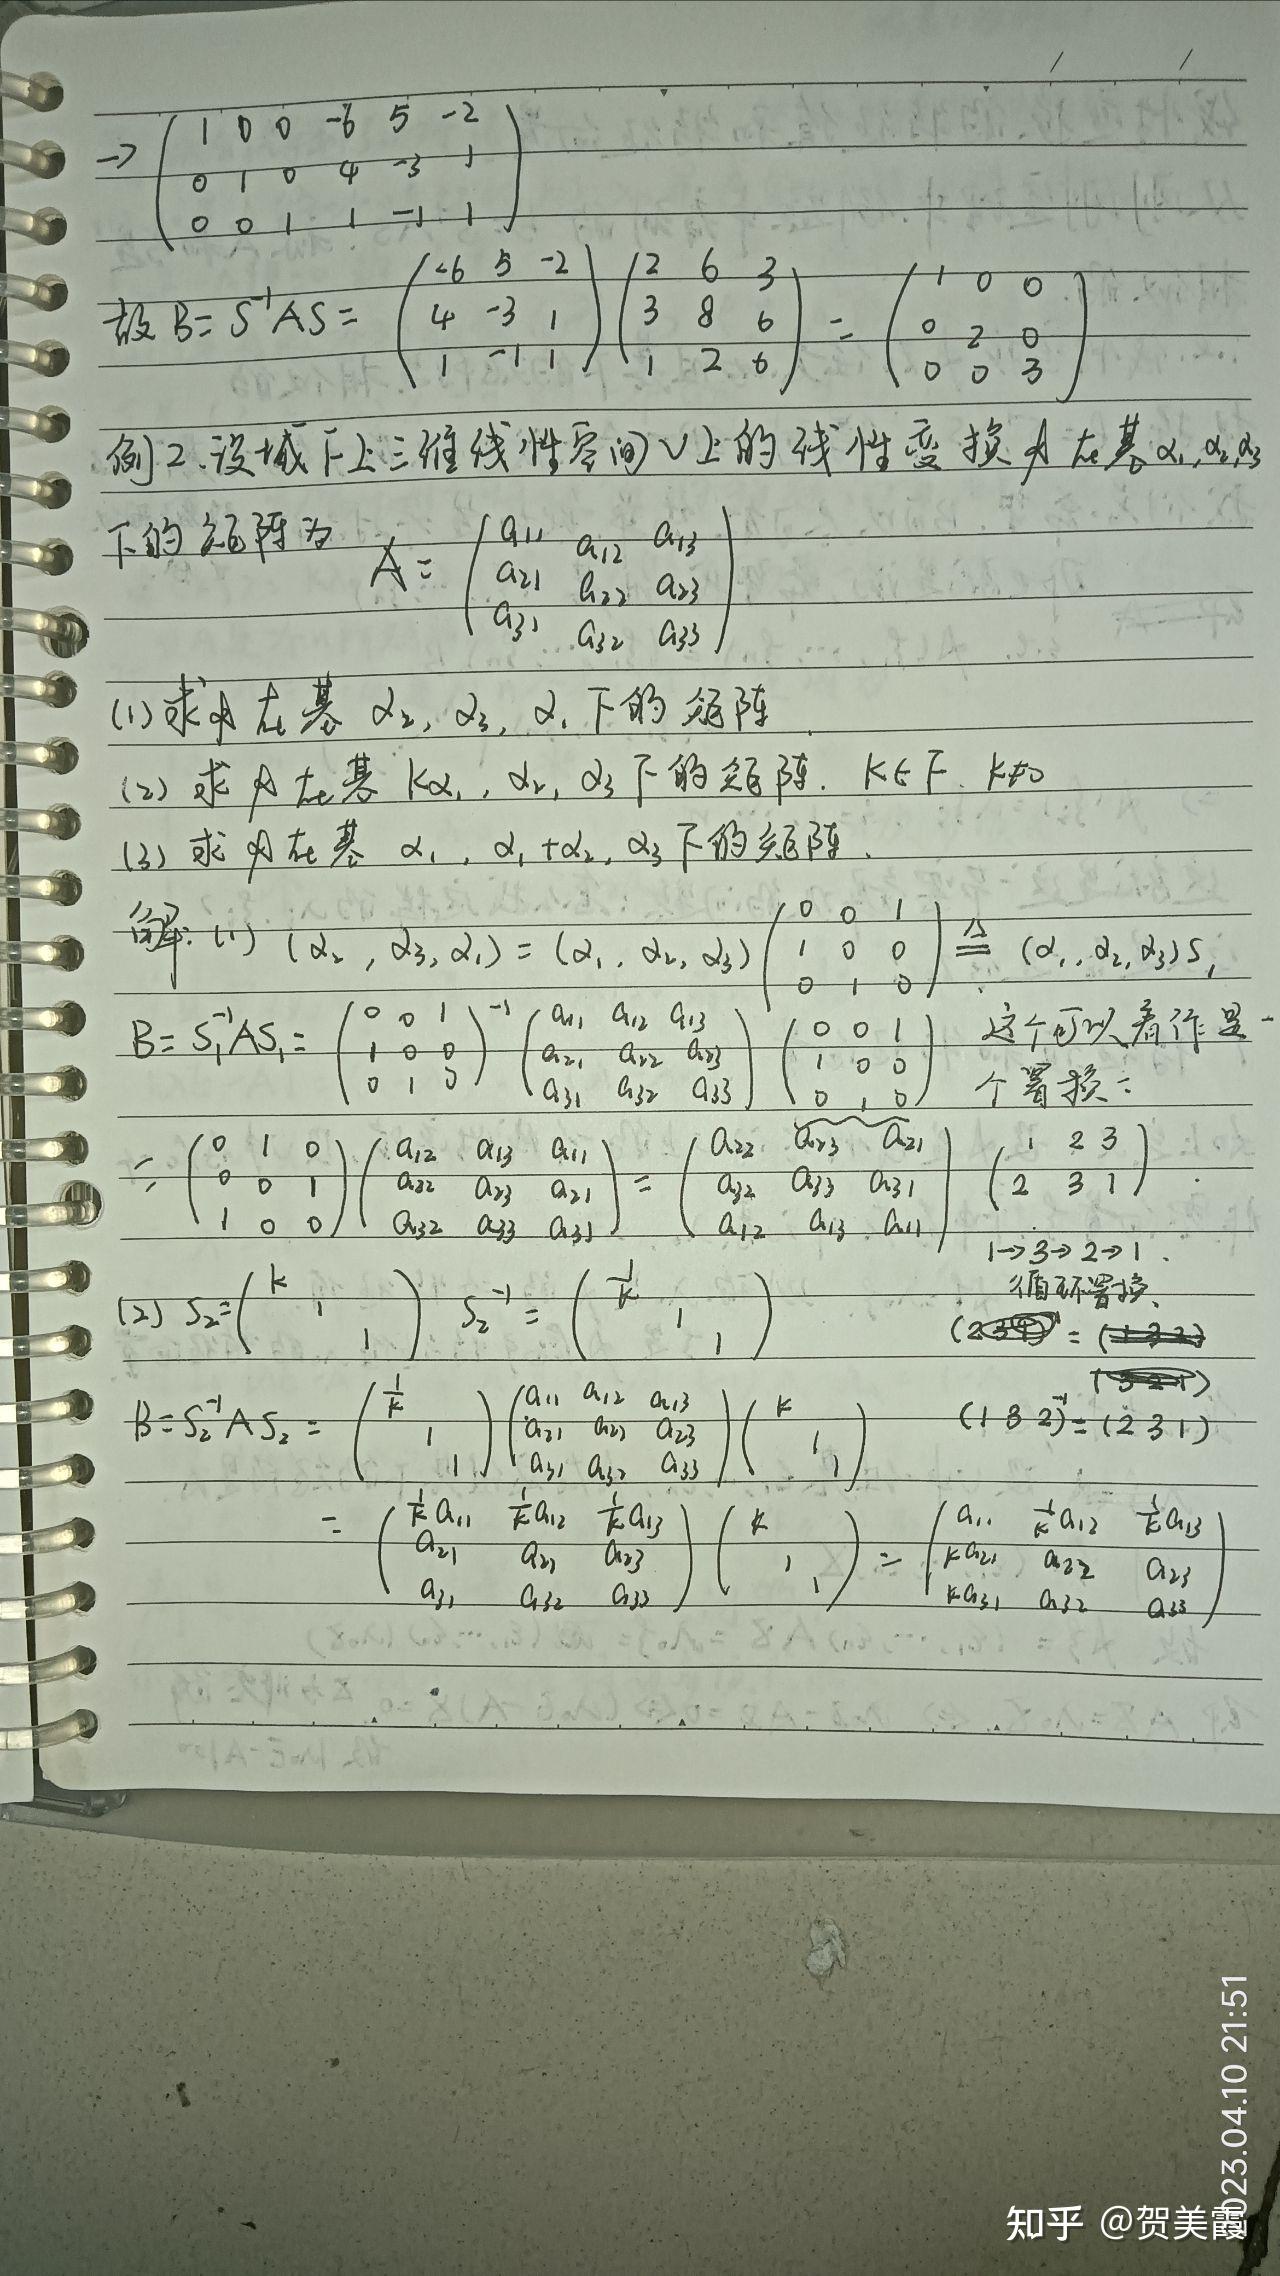 → ( 1 0 0 -6 5 -2
0 1 0 4 -3 1
0 0 1 1 -1 1 )
故 B = S⁻¹AS = ( -6 5 -2 ; 4 -3 1 ; 1 -1 1 ) ( 2 6 3 ; 3 8 6 ; 1 2 6 ) = ( 1 0 0 ; 0 2 0 ; 0 0 3 )
例2.设域F上三维线性空间V上的线性变换 A 在基 α₁,α₂,α₃
下的矩阵为 A = ( a₁₁ a₁₂ a₁₃ ; a₂₁ a₂₂ a₂₃ ; a₃₁ a₃₂ a₃₃ )
(1) 求 A 在基 α₂, α₃, α₁ 下的矩阵.
(2) 求 A 在基 kα₁, α₂, α₃ 下的矩阵. k∈F. k≠0
(3) 求 A 在基 α₁, α₁+α₂, α₃ 下的矩阵.
解: (1) (α₂, α₃, α₁) = (α₁, α₂, α₃) ( 0 0 1 ; 1 0 0 ; 0 1 0 ) ≜ (α₁, α₂, α₃)S₁
B = S₁⁻¹AS₁ = ( 0 0 1 ; 1 0 0 ; 0 1 0 )⁻¹ ( a₁₁ a₁₂ a₁₃ ; a₂₁ a₂₂ a₂₃ ; a₃₁ a₃₂ a₃₃ ) ( 0 0 1 ; 1 0 0 ; 0 1 0 ) 这个可以看作是一
个置换:
= ( 0 1 0 ; 0 0 1 ; 1 0 0 ) ( a₁₂ a₁₃ a₁₁ ; a₃₂ a₂₃ a₂₁ ; a₃₂ a₃₃ a₃₁ ) = ( a₂₂ a₂₃ a₂₁ ; a₃₂ a₃₃ a₃₁ ; a₁₂ a₁₃ a₁₁ ) ( 1 2 3 ; 2 3 1 ) .
1→3→2→1.
循环置换.
(2) S₂ = ( k ; 1 ; 1 ) S₂⁻¹ = ( 1/k ; 1 ; 1 )
B = S₂⁻¹AS₂ = ( 1/k ; 1 ; 1 ) ( a₁₁ a₁₂ a₁₃ ; a₂₁ a₂₂ a₂₃ ; a₃₁ a₃₂ a₃₃ ) ( k ; 1 ; 1 ) (1 3 2)⁻¹ = (2 3 1)
= ( 1/k a₁₁ 1/k a₁₂ 1/k a₁₃ ; a₂₁ a₂₂ a₂₃ ; a₃₁ a₃₂ a₃₃ ) ( k ; 1 ; 1 ) = ( a₁₁ 1/k a₁₂ 1/k a₁₃ ; k a₂₁ a₂₂ a₂₃ ; k a₃₁ a₃₂ a₃₃ )
2023.04.10 21:51
知乎 @贺美霞